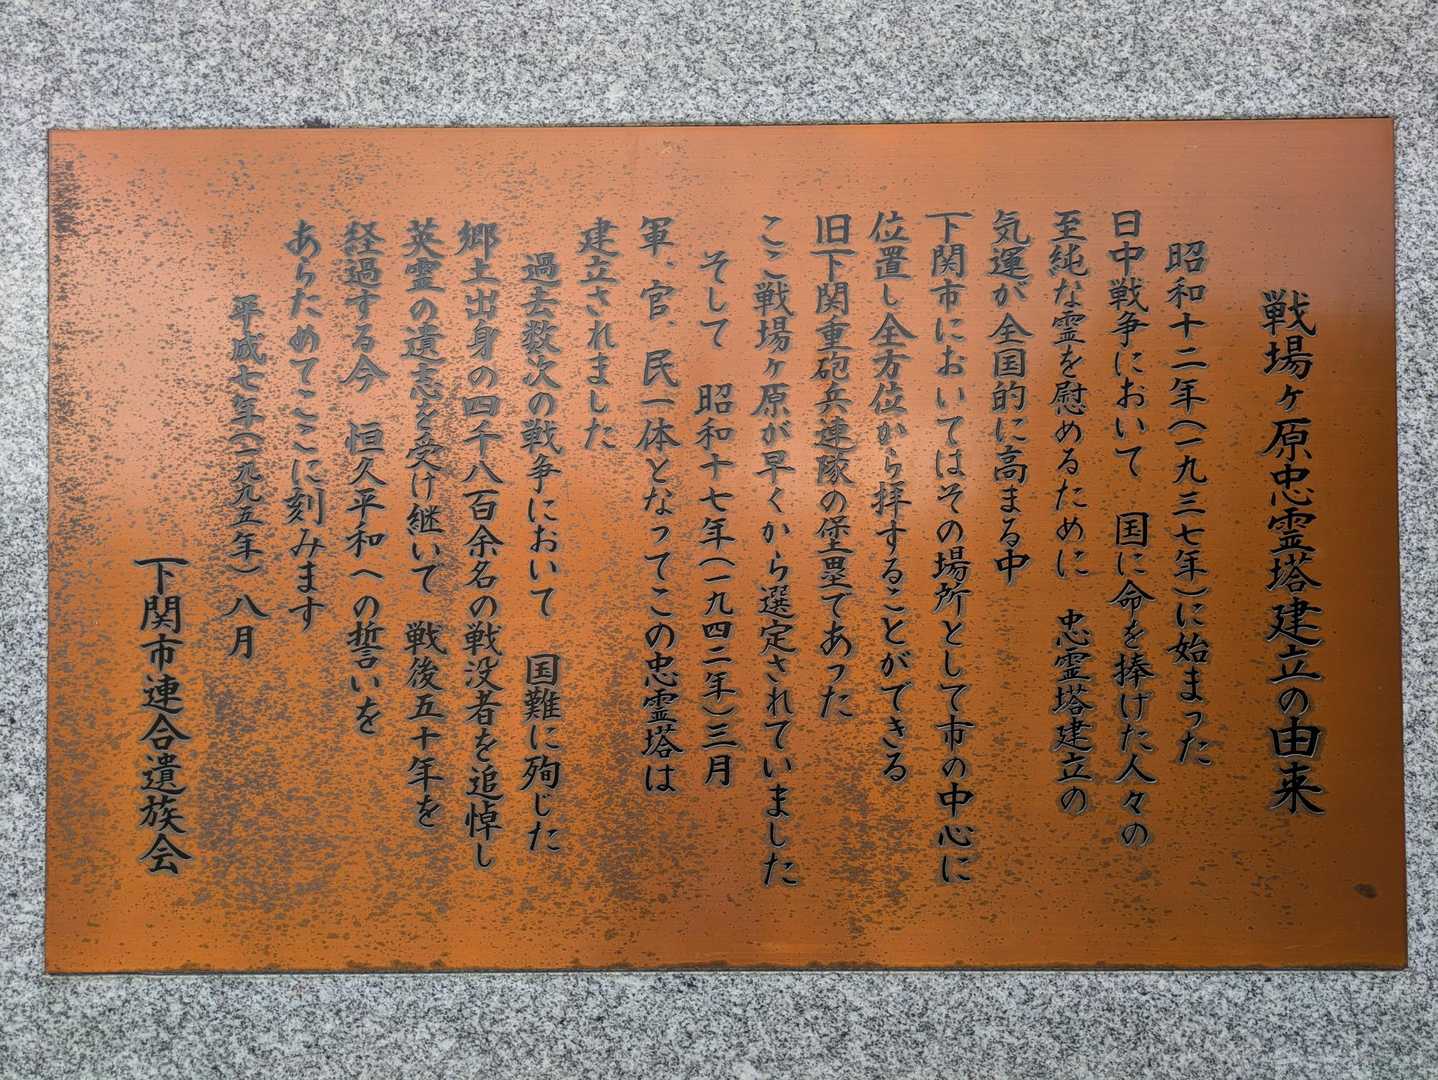 戦場ヶ原忠霊塔建立の由来
昭和十二年(一九三七年)に始まった
日中戦争において　国に命を捧げた人々の
至純な霊を慰めるために　忠霊塔建立の
気運が全国的に高まる中
下関市においてはその場所として市の中心に
位置し全方位から拝することができる
旧下関重砲兵連隊の堡塁であった
ここ戦場ヶ原が早くから選定されていました
そして　昭和十七年(一九四二年)三月
軍、官、民一体となってこの忠霊塔は
建立されました
過去数次の戦争において　国難に殉じた
郷土出身の四千八百余名の戦没者を追悼し
英霊の遺志を受け継いで　戦後五十年を
経過する今　恒久平和への誓いを
あらためてここに刻みます
平成七年(一九九五年)八月
下関市連合遺族会